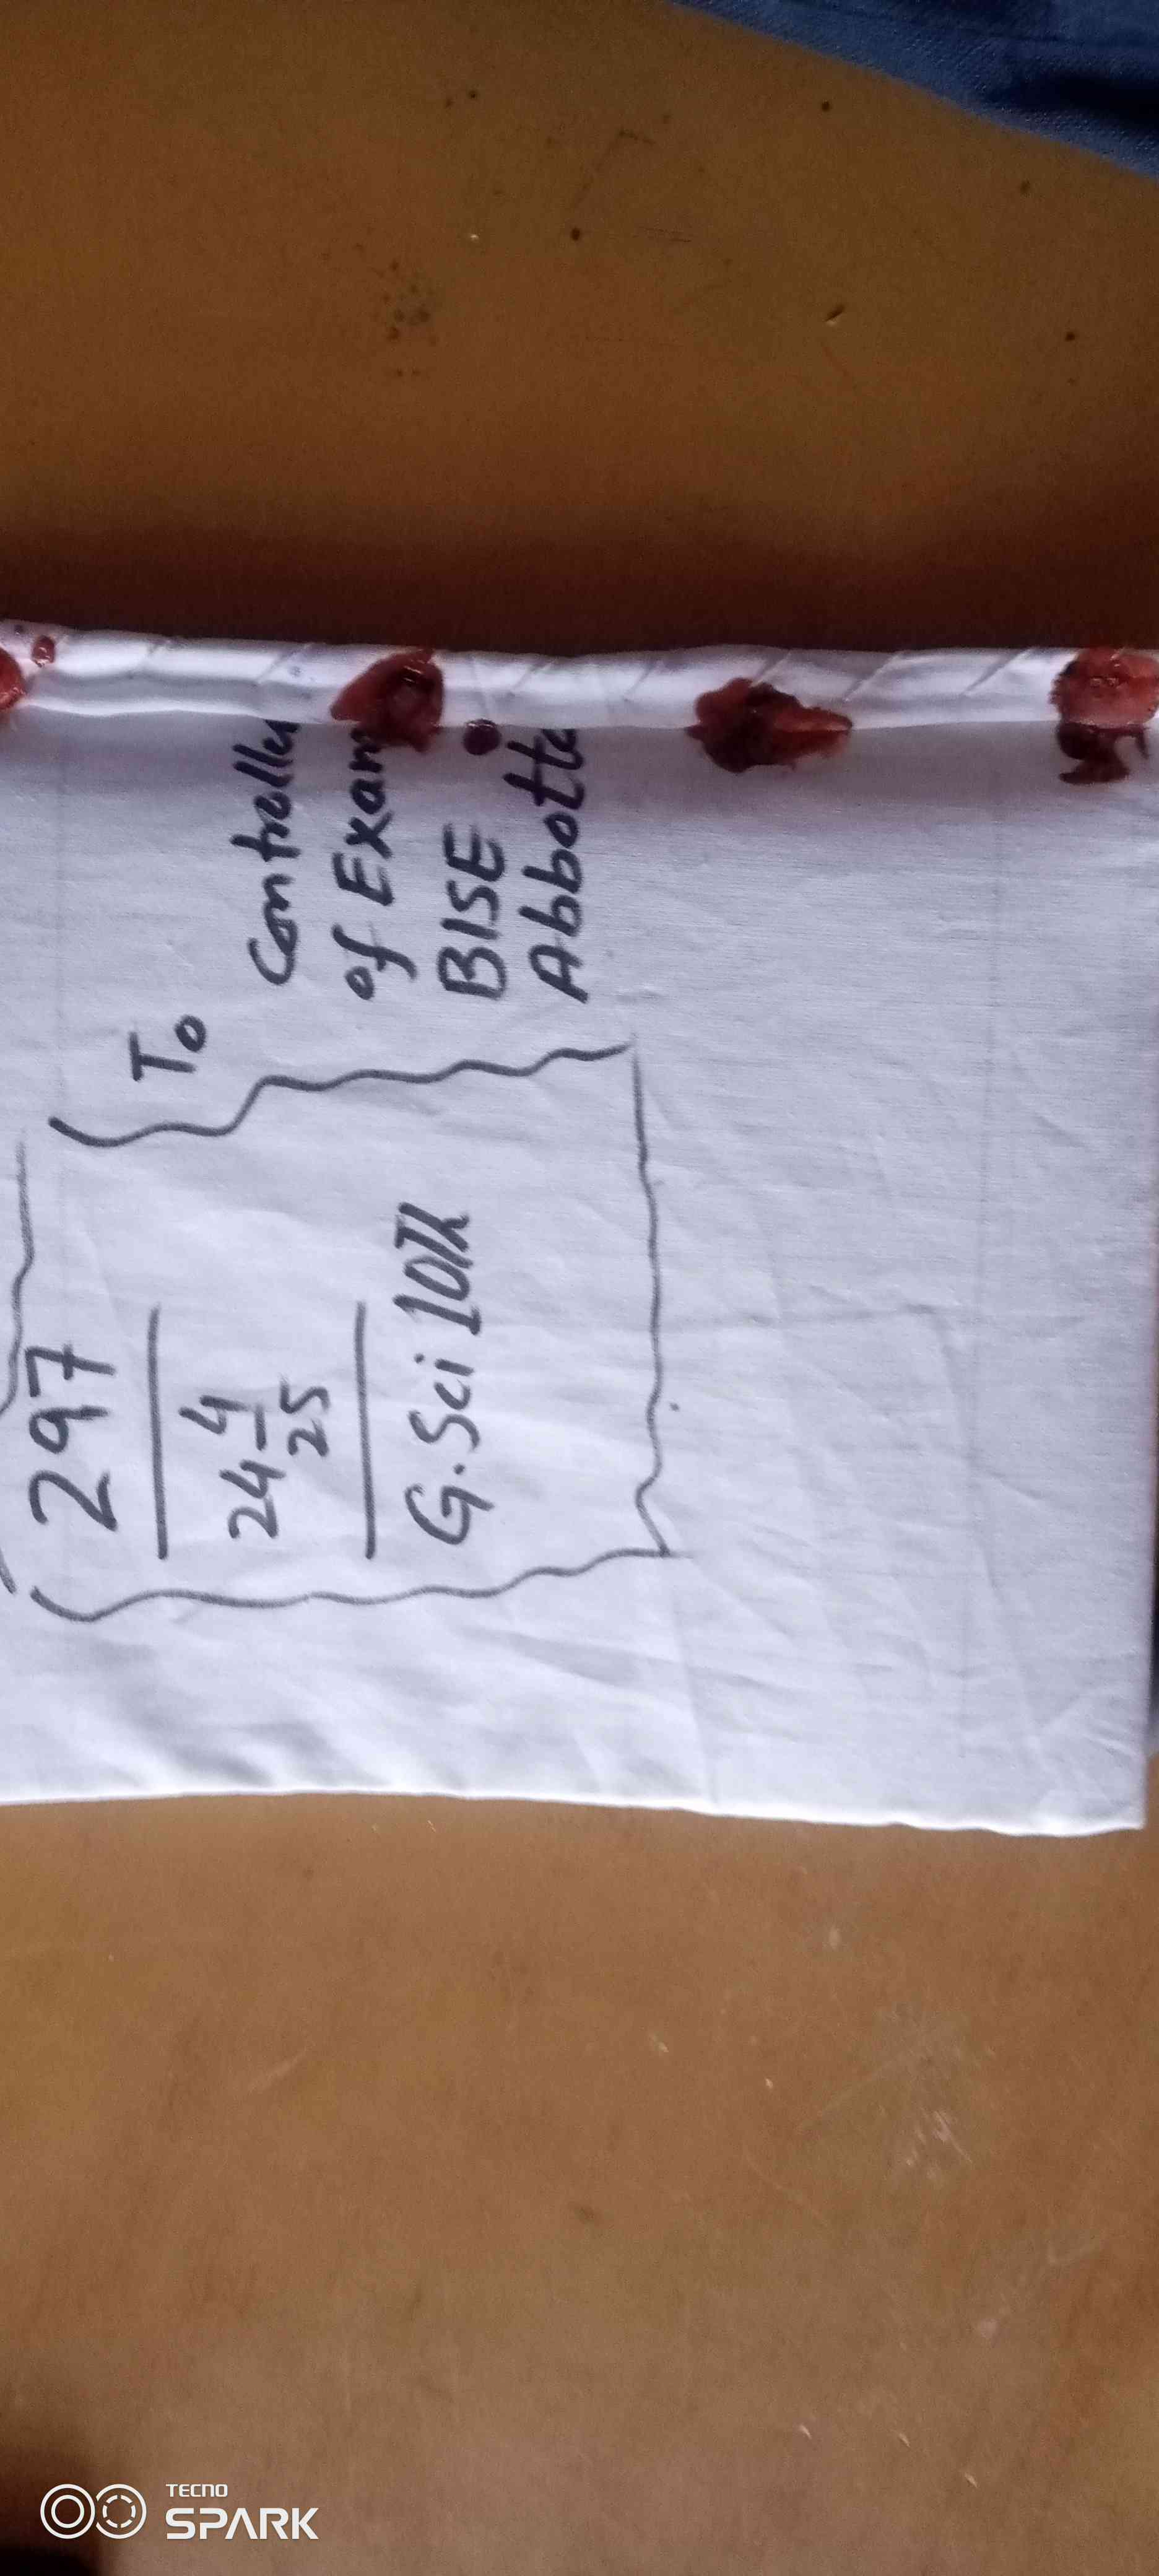 297
24 4/25
G. Sci 10Th
To
Controller
of Exam
BISE
Abbotta
TECNO
SPARK